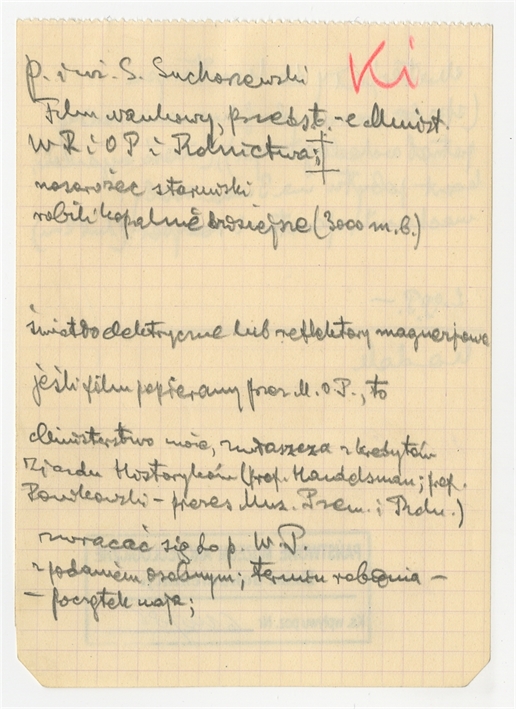 Ki
p. inż. S. Suchorzewski
Film naukowy, przedst. - Minist.
W R i O P i Rolnictwa;
nosorożec staruński
robili kopalnie (3000 m. b.)
światło elektryczne lub reflektory magnezjowe
jeśli film popierany przez M. O P., to
Ministerstwo może, zwłaszcza z kredytów
Zjazdu Historyków (prof. Handelsman; prof.
Ponikowski - prezes Muz. Przem. i Roln.)
zwracać się do p. W. P.
z podaniem osobnym; termin robienia -
- początek maja;